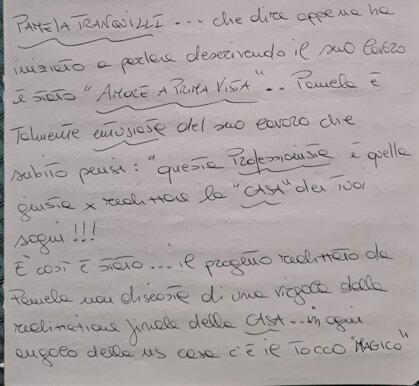 PAMELA TRANQUILLI ... che dire appena ha
iniziato a parlare descrivendo il suo lavoro
è stato "AMORE A PRIMA VISTA" .. Pamela è
talmente emosiose del suo lavoro che
subito pensi: "questa Professionista è quella
giusta x realizzare la "CASA" dei tuoi
sogni !!!
E così è stato ... il progetto realizzato da
Pamela non discosta di una virgola dalla
realizzazione finale della CASA .. in ogni
angolo della ns casa c'è il TOCCO "MAGICO"